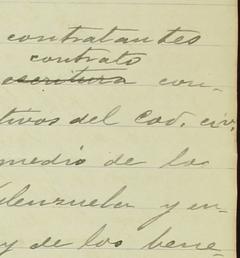 contratantes
contrato
escritura con-
tivos del Cod. civ.
medio de los
lenzuela y en-
y de los bene-